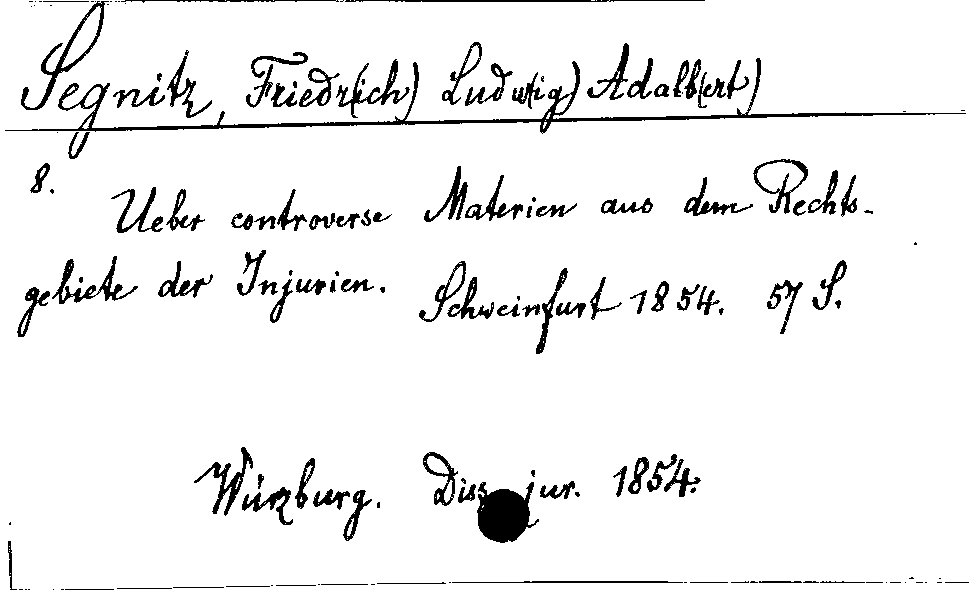 Segnitz, Friedr(ich) Ludw(ig) Adalb(ert)
8.
Ueber controverse Materien aus dem Rechts-
gebiete der Injurien. Schweinfurt 1854. 57 S.
Würzburg. Diss. jur. 1854.